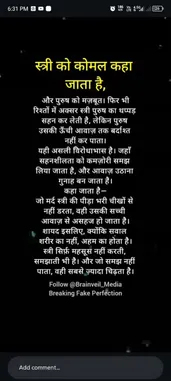 6:31 PM
स्त्री को कोमल कहा
जाता है,
और पुरुष को मज़बूत। फिर भी
रिश्तों में अक्सर स्त्री पुरुष का थप्पड़
सहन कर लेती है, लेकिन पुरुष
उसकी ऊँची आवाज़ तक बर्दाश्त
नहीं कर पाता।
यही असली विरोधाभास है। जहाँ
सहनशीलता को कमज़ोरी समझ
लिया जाता है, और आवाज़ उठाना
गुनाह बन जाता है।
कहा जाता है—
जो मर्द स्त्री की पीड़ा भरी चीखों से
नहीं डरता, वही उसकी सच्ची
आवाज़ से असहज हो जाता है।
शायद इसलिए, क्योंकि सवाल
शरीर का नहीं, अहम का होता है।
स्त्री सिर्फ़ महसूस नहीं करती,
समझाती भी है। और जो समझ नहीं
पाता, वही सबसे ज़्यादा चिढ़ता है।
Follow @Brainveil_Media
Breaking Fake Perfection
Add comment...